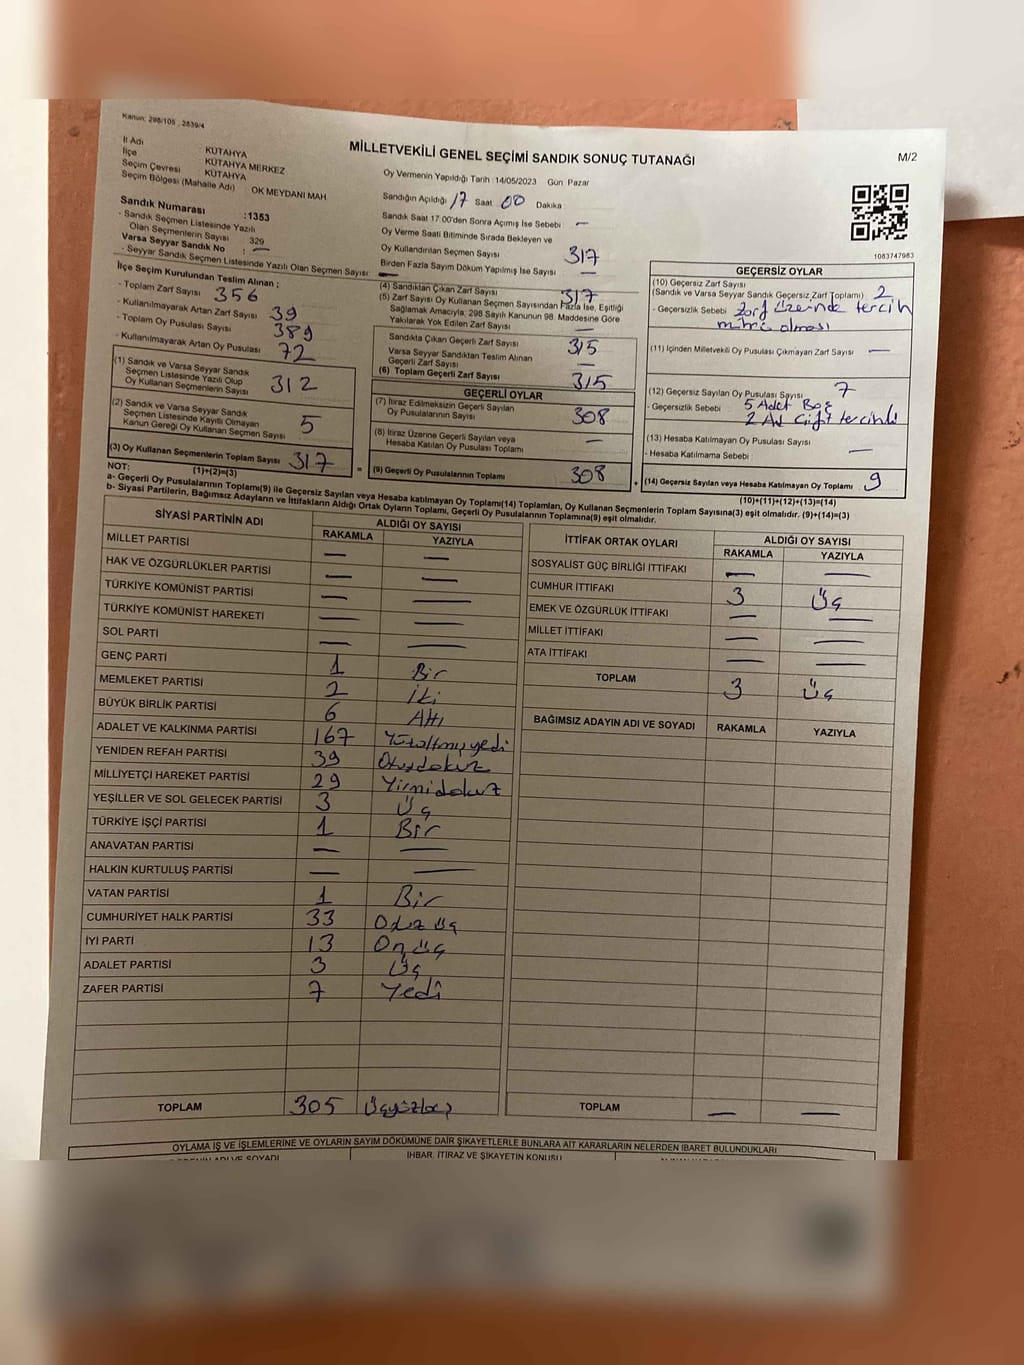 Kanun: 298/105 , 2839/4
MİLLETVEKİLİ GENEL SEÇİMİ SANDIK SONUÇ TUTANAĞI
M/2
İl Adı : KÜTAHYA
İlçe : KÜTAHYA MERKEZ
Seçim Çevresi : KÜTAHYA
Seçim Bölgesi (Mahalle Adı) : OK MEYDANI MAH
Sandık Numarası : 1353
- Sandık Seçmen Listesinde Yazılı
Olan Seçmenlerin Sayısı : 329
Varsa Seyyar Sandık No : —
- Seyyar Sandık Seçmen Listesinde Yazılı Olan Seçmen Sayısı : —
Oy Vermenin Yapıldığı Tarih : 14/05/2023 Gün Pazar
Sandığın Açıldığı 17 Saat 00 Dakika
Sandık Saat 17.00'den Sonra Açımış İse Sebebi : —
Oy Verme Saati Bitiminde Sırada Bekleyen ve
Oy Kullandırılan Seçmen Sayısı 317
Birden Fazla Sayım Döküm Yapılmış İse Sayısı —
1083747983
İlçe Seçim Kurulundan Teslim Alınan ;
- Toplam Zarf Sayısı 356
- Kullanılmayarak Artan Zarf Sayısı 39
- Toplam Oy Pusulası Sayısı 389
- Kullanılmayarak Artan Oy Pusulası 72
(1) Sandık ve Varsa Seyyar Sandık
Seçmen Listesinde Yazılı Olup
Oy Kullanan Seçmenlerin Sayısı 312
(2) Sandık ve Varsa Seyyar Sandık
Seçmen Listesinde Kayıtlı Olmayan
Kanun Gereği Oy Kullanan Seçmen Sayısı 5
(3) Oy Kullanan Seçmenlerin Toplam Sayısı 317
(1)+(2)=(3)
(4) Sandıktan Çıkan Zarf Sayısı 317
(5) Zarf Sayısı Oy Kullanan Seçmen Sayısından Fazla İse, Eşitliği
Sağlamak Amacıyla, 298 Sayılı Kanunun 98. Maddesine Göre
Yakılarak Yok Edilen Zarf Sayısı —
Sandıkta Çıkan Geçerli Zarf Sayısı 315
Varsa Seyyar Sandıktan Teslim Alınan
Geçerli Zarf Sayısı —
(6) Toplam Geçerli Zarf Sayısı 315
GEÇERLİ OYLAR
(7) İtiraz Edilmeksizin Geçerli Sayılan
Oy Pusulalarının Sayısı 308
(8) İtiraz Üzerine Geçerli Sayılan veya
Hesaba Katılan Oy Pusulası Toplamı —
(9) Geçerli Oy Pusulalarının Toplamı 308
GEÇERSİZ OYLAR
(10) Geçersiz Zarf Sayısı
(Sandık ve Varsa Seyyar Sandık Geçersiz Zarf Toplamı) 2
- Geçersizlik Sebebi Zarf üzerinde tercih
mührü olması
(11) İçinden Milletvekili Oy Pusulası Çıkmayan Zarf Sayısı —
(12) Geçersiz Sayılan Oy Pusulası Sayısı 7
- Geçersizlik Sebebi 5 Adet Boş
2 Ad Çift tercihli
(13) Hesaba Katılmayan Oy Pusulası Sayısı
- Hesaba Katılmama Sebebi : —
(14) Geçersiz Sayılan veya Hesaba Katılmayan Oy Toplamı 9
(10)+(11)+(12)+(13)=(14)
NOT:
a- Geçerli Oy Pusulalarının Toplamı(9) ile Geçersiz Sayılan veya Hesaba katılmayan Oy Toplamı(14) Toplamları, Oy Kullanan Seçmenlerin Toplam Sayısına(3) eşit olmalıdır. (9)+(14)=(3)
b- Siyasi Partilerin, Bağımsız Adayların ve İttifakların Aldığı Ortak Oyların Toplamı, Geçerli Oy Pusulalarının Toplamına(9) eşit olmalıdır.
SİYASİ PARTİNİN ADI ALDIĞI OY SAYISI
RAKAMLA YAZIYLA
MİLLET PARTİSİ — —
HAK VE ÖZGÜRLÜKLER PARTİSİ — —
TÜRKİYE KOMÜNİST PARTİSİ — —
TÜRKİYE KOMÜNİST HAREKETİ — —
SOL PARTİ — —
GENÇ PARTİ 1 Bir
MEMLEKET PARTİSİ 2 İki
BÜYÜK BİRLİK PARTİSİ 6 Altı
ADALET VE KALKINMA PARTİSİ 167 Yüzaltmışyedi
YENİDEN REFAH PARTİSİ 39 Otuzdokuz
MİLLİYETÇİ HAREKET PARTİSİ 29 Yirmidokuz
YEŞİLLER VE SOL GELECEK PARTİSİ 3 Üç
TÜRKİYE İŞÇİ PARTİSİ 1 Bir
ANAVATAN PARTİSİ — —
HALKIN KURTULUŞ PARTİSİ — —
VATAN PARTİSİ 1 Bir
CUMHURİYET HALK PARTİSİ 33 Otuz üç
İYİ PARTİ 13 On üç
ADALET PARTİSİ 3 Üç
ZAFER PARTİSİ 7 Yedi
TOPLAM 305 Üçyüzbeş
İTTİFAK ORTAK OYLARI ALDIĞI OY SAYISI
RAKAMLA YAZIYLA
SOSYALİST GÜÇ BİRLİĞİ İTTİFAKI — —
CUMHUR İTTİFAKI 3 Üç
EMEK VE ÖZGÜRLÜK İTTİFAKI — —
MİLLET İTTİFAKI — —
ATA İTTİFAKI — —
TOPLAM 3 Üç
BAĞIMSIZ ADAYIN ADI VE SOYADI RAKAMLA YAZIYLA
TOPLAM — —
OYLAMA İŞ VE İŞLEMLERİNE VE OYLARIN SAYIM DÖKÜMÜNE DAİR ŞİKAYETLERLE BUNLARA AİT KARARLARIN NELERDEN İBARET BULUNDUKLARI
İHBAR, İTİRAZ VE ŞİKAYETİN KONUSU